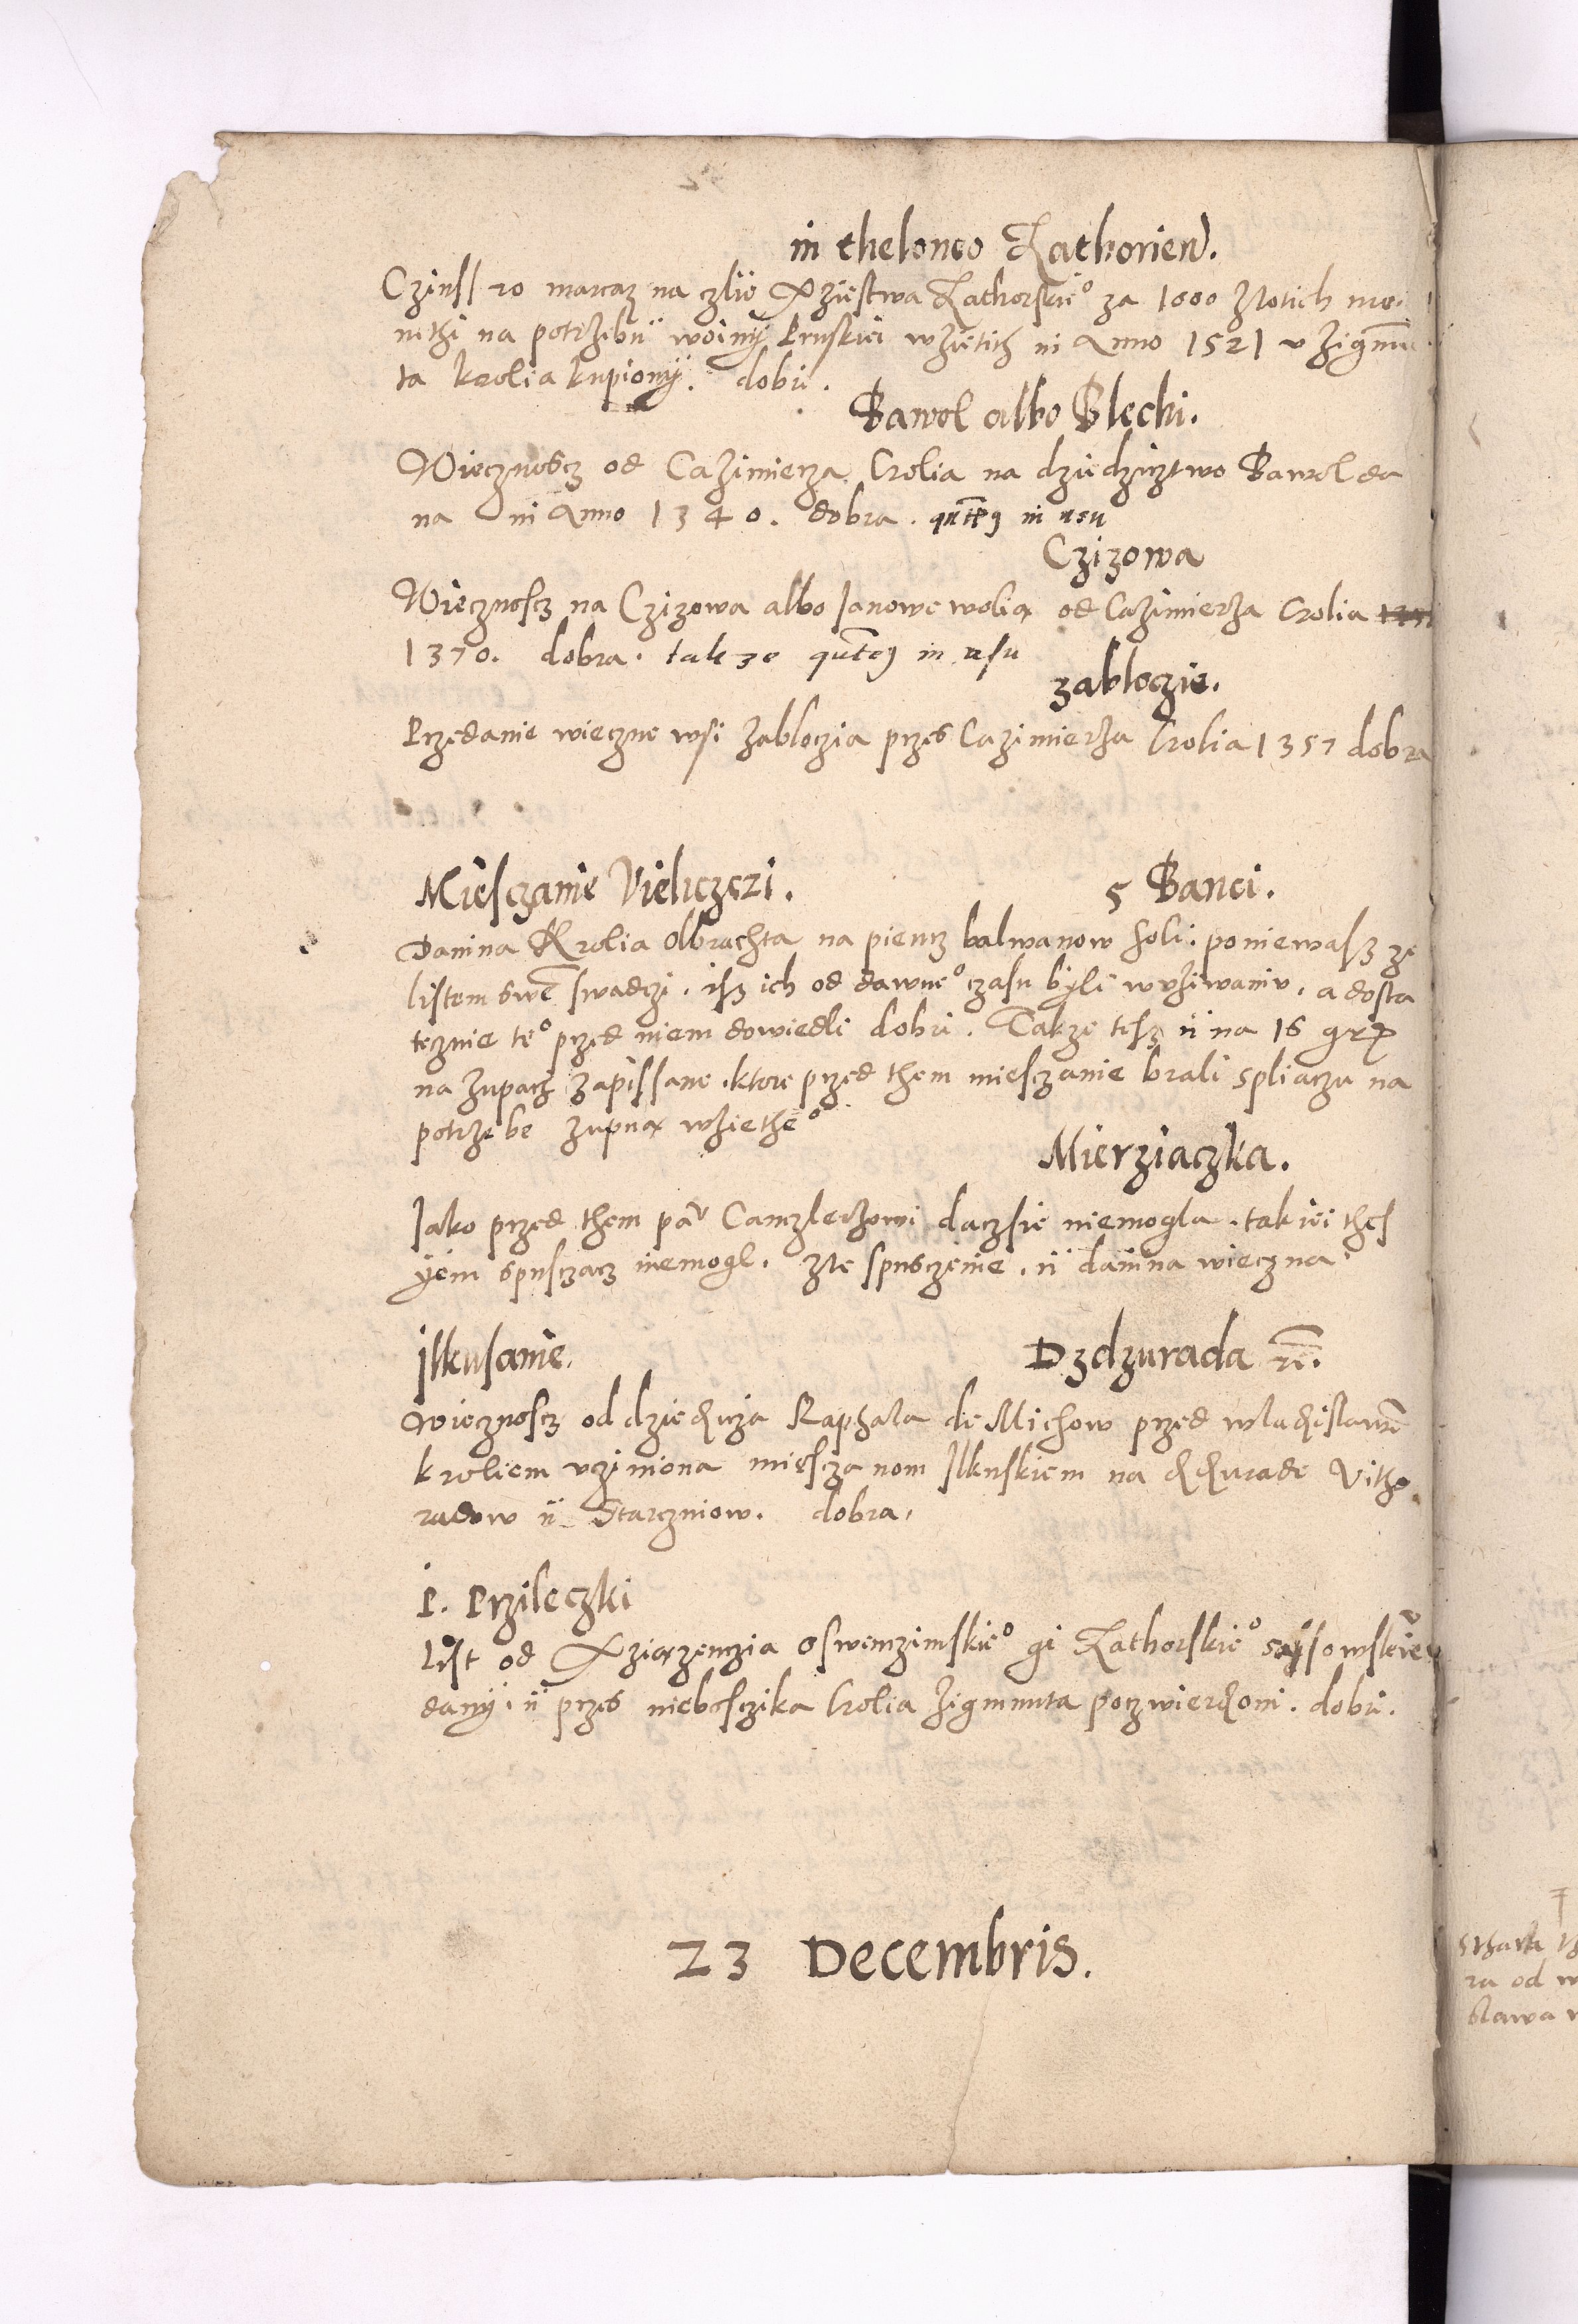 in theloneo Zathorien.
Czinss 20 marcaz na czlie Xziestwa Zathorskieo za 1000 zlotich mo-
nethi na potrzebu woiny Pruskiei wzietich in Anno 1521 v Zigmu-
ta krolia kupiony. dobri.
Bawol albo Blechi.
Wiecznoscz od Cazimierza Crolia na dziedzicztwo Bawol da
na in Anno 1340. dobra. in usu
Czizowa
Wiecznoscz na Czizowa albo Janowe wolia od Cazimierza Crolia
1370. dobra. takze in usu
zabloczie.
Przedanie wieczne wsi Zabloczia przes Cazimierza Crolia 1357 dobra
Miesczanie Vieliczczi.
5 Banci.
Danina Krolia Olbrachta na piencz balwanow soli. poniewasz ze
listem swe swadczi. isz ich od dawneo czasu byli w vziwaniv. a dosta
tecznie teo przed niem dowiedli dobri. Takze tesz ii na 16 grz
na zupach zapissane. ktore przed them miesczanie brali spliaczu na
potrzebe zupna wzietheo
Mierziaczka.
Jako przed them pav Canczlerzowi daczsie niemogla. tak iei thes
yem spusczacz niemogl. zle spusczenie. ii danina wieczna
Ilkusanie.
Dzdzurada re.
Wiecznoscz od dziedzicza Raphala de Michow przed wladzislawe
kroliem vcziniona miesczanom Ilkuskiem na dzdzurade Vitho
radow ii Starczniow. dobra.
P. Przileczki
List od Xziazenczia Oswenczimskieo gi Zathorskieo
dany. ii przes niebosczika Crolia Zigmunta poczwierdzoni. dobri.
23 Decembris.